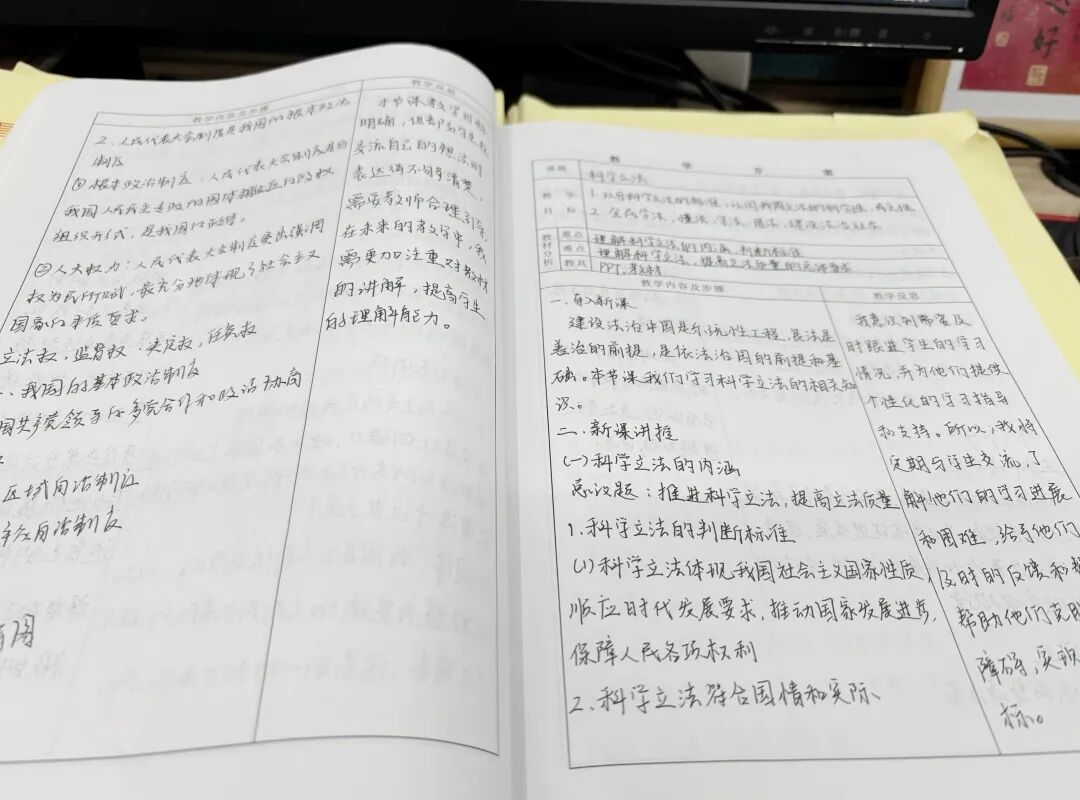 教学内容及步骤
2、人民代表大会制度是我国的根本政治
制度
①根本政治制度：人民代表大会制度是
我国人民民主专政的国体相适应的政权
组织形式，是我国的政体。
②人大权力：人民代表大会制度
权为民所 ，最充分地体现了社会主义
国家的本质要求。
立法权，监督权，决定权，任免权
我国的基本政治制度
国共产党领导的多党合作和政治协商
区域自治制度
自治制度
教学反思
本节课教学目标
明确，但
交流自己的想法时
表达得不够清楚，
需要教师合理引导，
在未来的教学中，我
需更加注重对教材
的讲解，提高学生
的理解能力。
教 学 方 案
课题 科学立法
教学目标 1.
2、全民学法、懂法、守法、用法，建设法治社会
教材分析 重点 理解科学立法的内涵、判断标准
难点 理解科学立法，提高立法质量的
教具 PPT、教材
教学内容及步骤
一、导入新课
建设法治中国是系统性工程，良法是
善治的前提，是依法治国的前提和基
础。本节课我们学习科学立法的相关知
识。
二、新课讲授
(一)科学立法的内涵
总议题：推进科学立法，提高立法质量
1.科学立法的判断标准
(1)科学立法体现我国社会主义国家性质，
顺应时代发展要求，推动国家发展进步，
保障人民各项权利
2、科学立法符合国情和实际、
教学反思
我意识到需要及
时跟进学生的学习
情况，并为他们提供
个性化的学习指导
和支持。所以，我将
定期与学生交流，了
解他们的学习进展
和困难，给予他们
及时的反馈和
帮助他们克
障碍，实现
标。
好